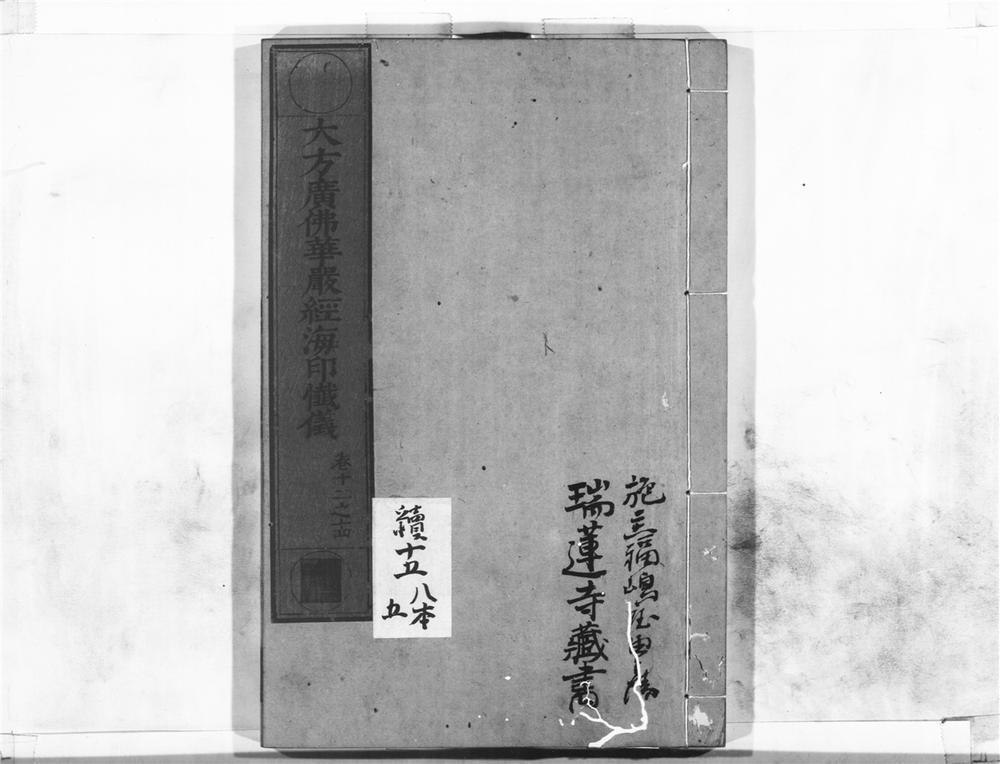 施主福嶋屋由蔵
瑞蓮寺藏書
大方廣佛華嚴經海印懺儀
卷十二之十四
續十五
八本
五